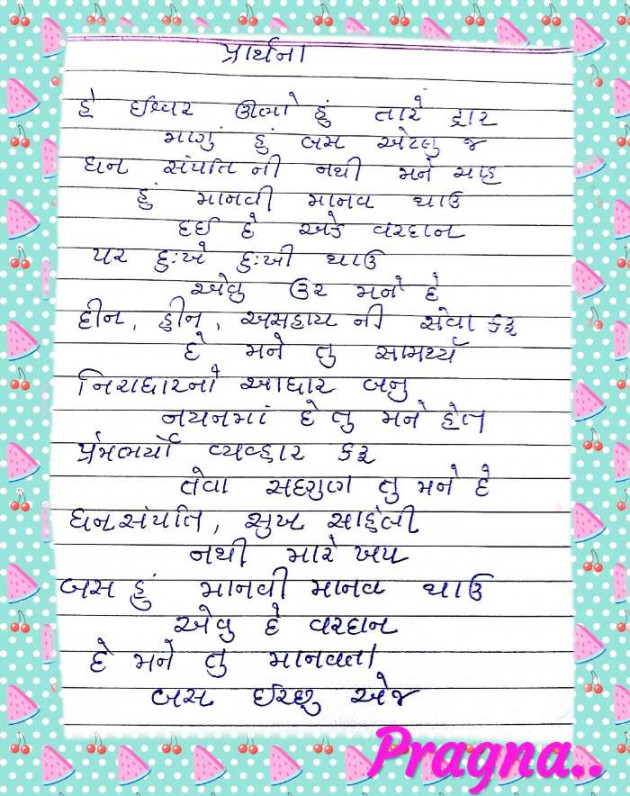 પ્રાર્થના
હે ઈશ્વર ઊભો હું તારે દ્વાર
માગું હું બસ એટલુ જ
ધન સંપતિ ની નથી મને ચાહ
હું માનવી માનવ થાઉ
દઈ દે એક વરદાન
પર દુઃખે દુઃખી થાઉ
એવુ ઉર મને દે
દીન, હીન, અસહાય ની સેવા કરૂ
દે મને તુ સામર્થ્ય
નિરાધારનો આધાર બનુ
નયનમાં દે તુ મને હેત
પ્રેમભર્યો વ્યવ્હાર કરૂ
તેવા સદગુણ તુ મને દે
ધન સંપતિ, સુખ સાહેલી
નથી મારે ખપ
બસ હું માનવી માનવ થાઉ
એવુ દે વરદાન
દે મને તુ માનવતા
બસ ઈચ્છુ એજ
Pragna..